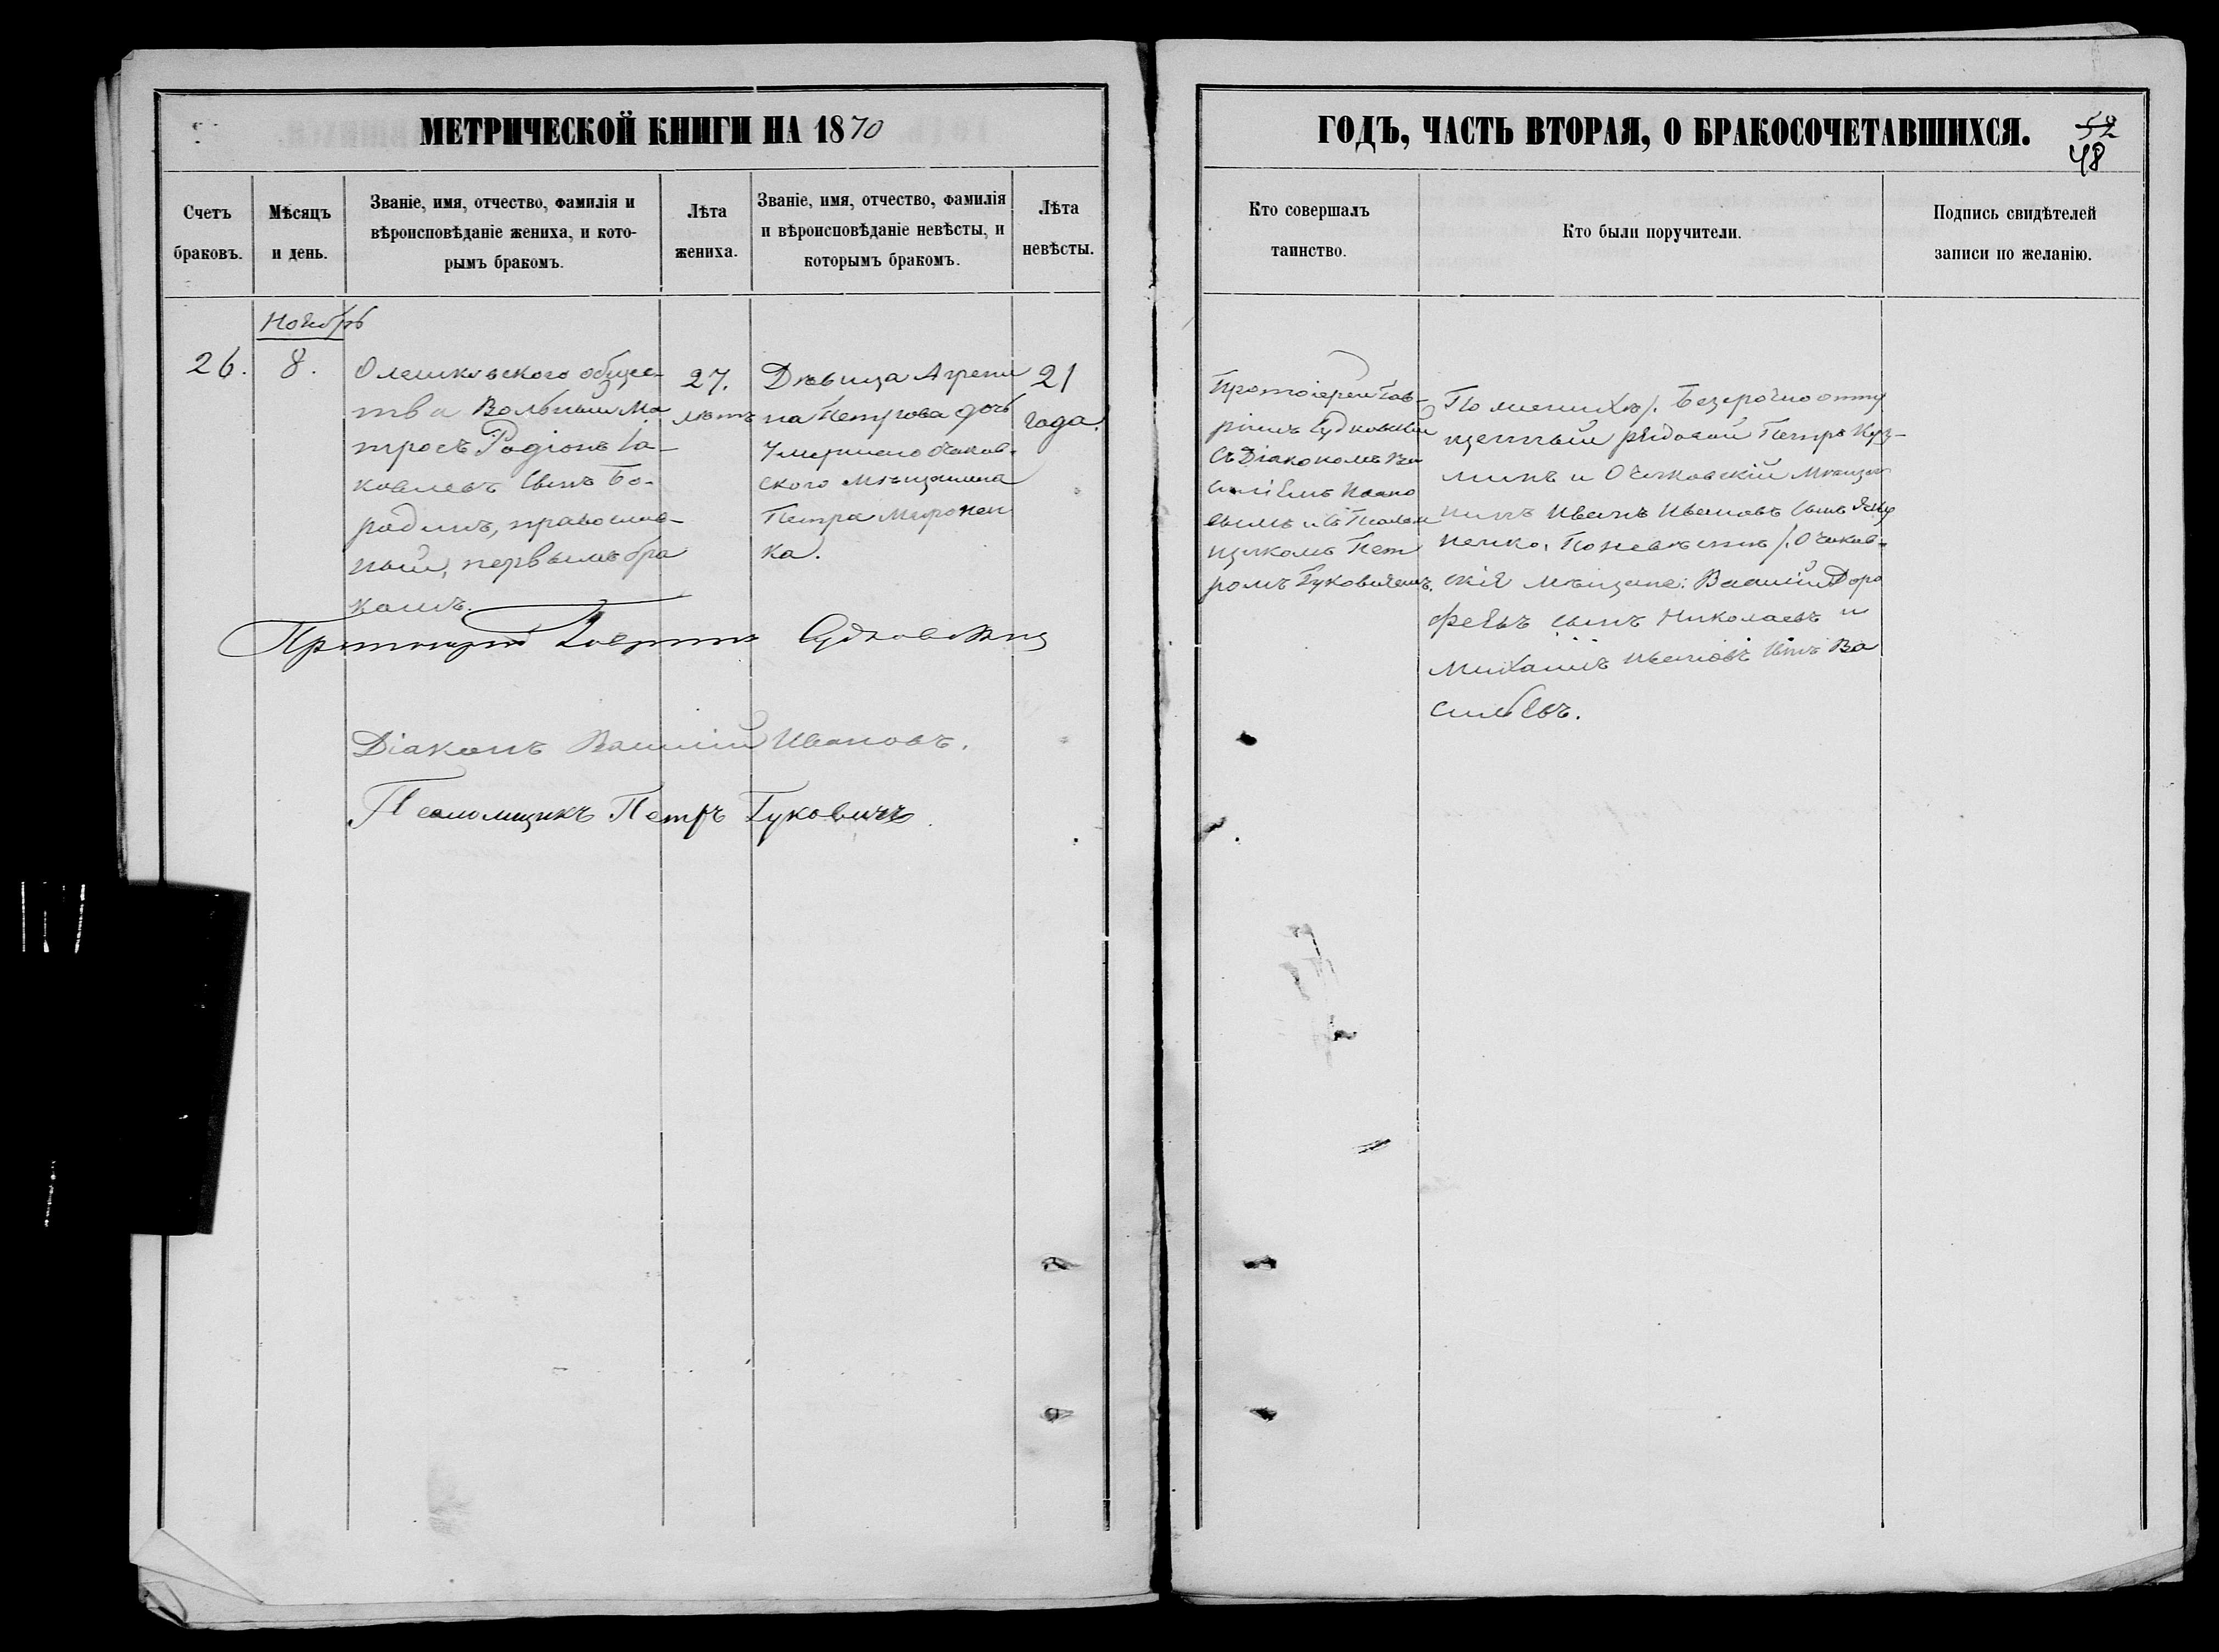 МЕТРИЧЕСКОЙ КНИГИ НА 1870
Счетъ браковъ.
Мѣсяцъ и день.
Званіе, имя, отчество, фамилія и вѣроисповѣданіе жениха, и кото-
рымъ бракомъ.
Лѣта жениха.
Званіе, имя, отчество, фамилія и вѣроисповѣданіе невѣсты, и
которымъ бракомъ.
Лѣта невѣсты.
Ноябрь
26.
8.
Олешковского общес-
тва Вольный Ма
тросъ Родіонъ Іа-
ковлевъ сынъ Бо-
родинъ, православ-
ный, первымъ бра
комъ.
27.
лѣтъ
Дѣвица Агрепи
на Петрова дочь
Умершаго Очаков-
ского мѣщанина
Петра Миронен
ка.
21
года.
Протоіерей Гавріилъ Судковскій
Діаконъ Василій Ивановъ.
Псаломщикъ Петръ Гуковичъ.
ГОДЪ, ЧАСТЬ ВТОРАЯ, О БРАКОСОЧЕТАВШИХСЯ.
48
Кто совершалъ
таинство.
Кто были поручители.
Подпись свидѣтелей
записи по желанію.
Протоіерей Гав-
ріилъ Судковскій
съ Діакономъ Ва
силіемъ Ивано
вымъ и съ Псалом
щикомъ Пет
ромъ Гуковичемъ.
По женихѣ/. Безсрочно отпу
щенный рядовой Петръ Куз-
минъ и Очаковскій мѣщан
инъ Иванъ Ивановъ сынъ
ненко. По невѣстѣ/. Очаков-
скія мѣщане: Василій Доро
феевъ сынъ Николаевъ и
Михаилъ Ивановъ сынъ Ва
сильевъ.